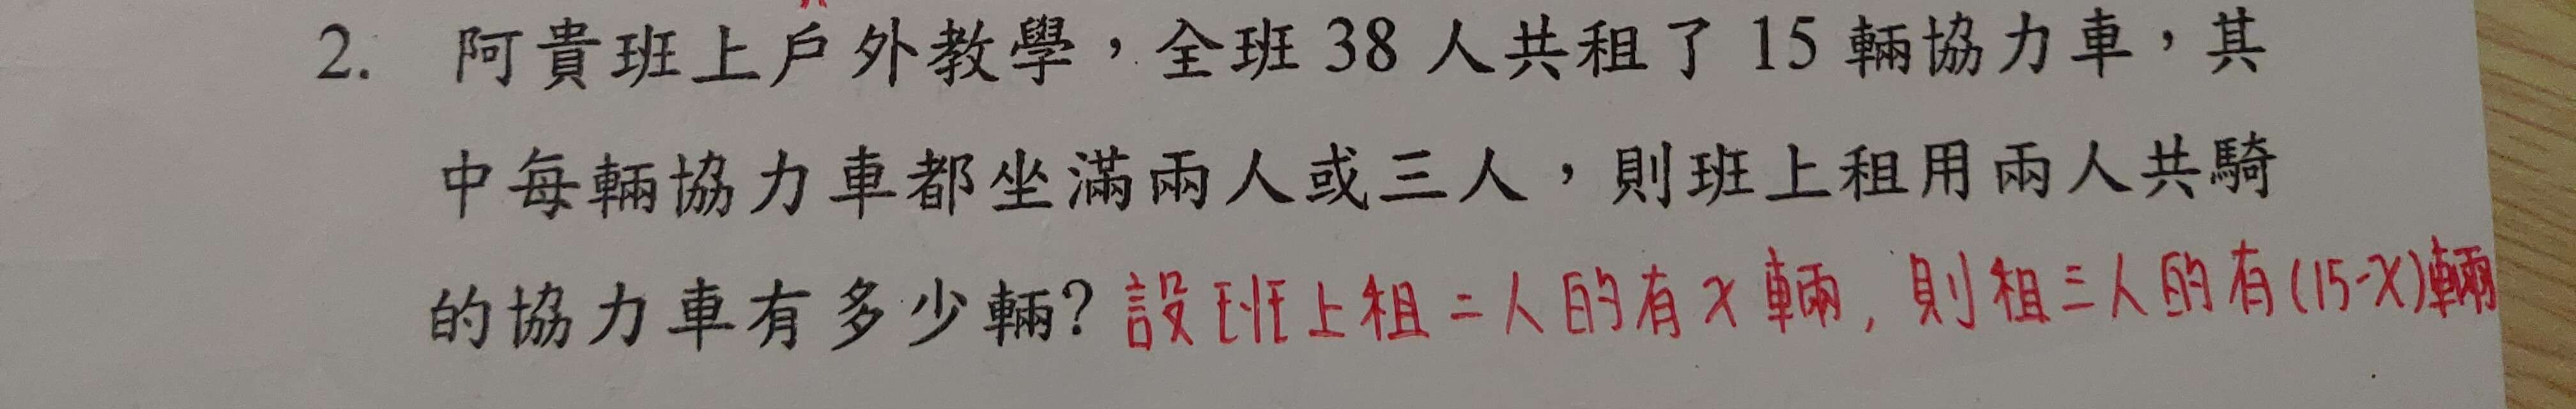 2. 阿貴班上戶外教學，全班 38 人共租了 15 輛協力車，其
中每輛協力車都坐滿兩人或三人，則班上租用兩人共騎
的協力車有多少輛? 設班上租二人的有x輛，則租三人的有(15-x)輛